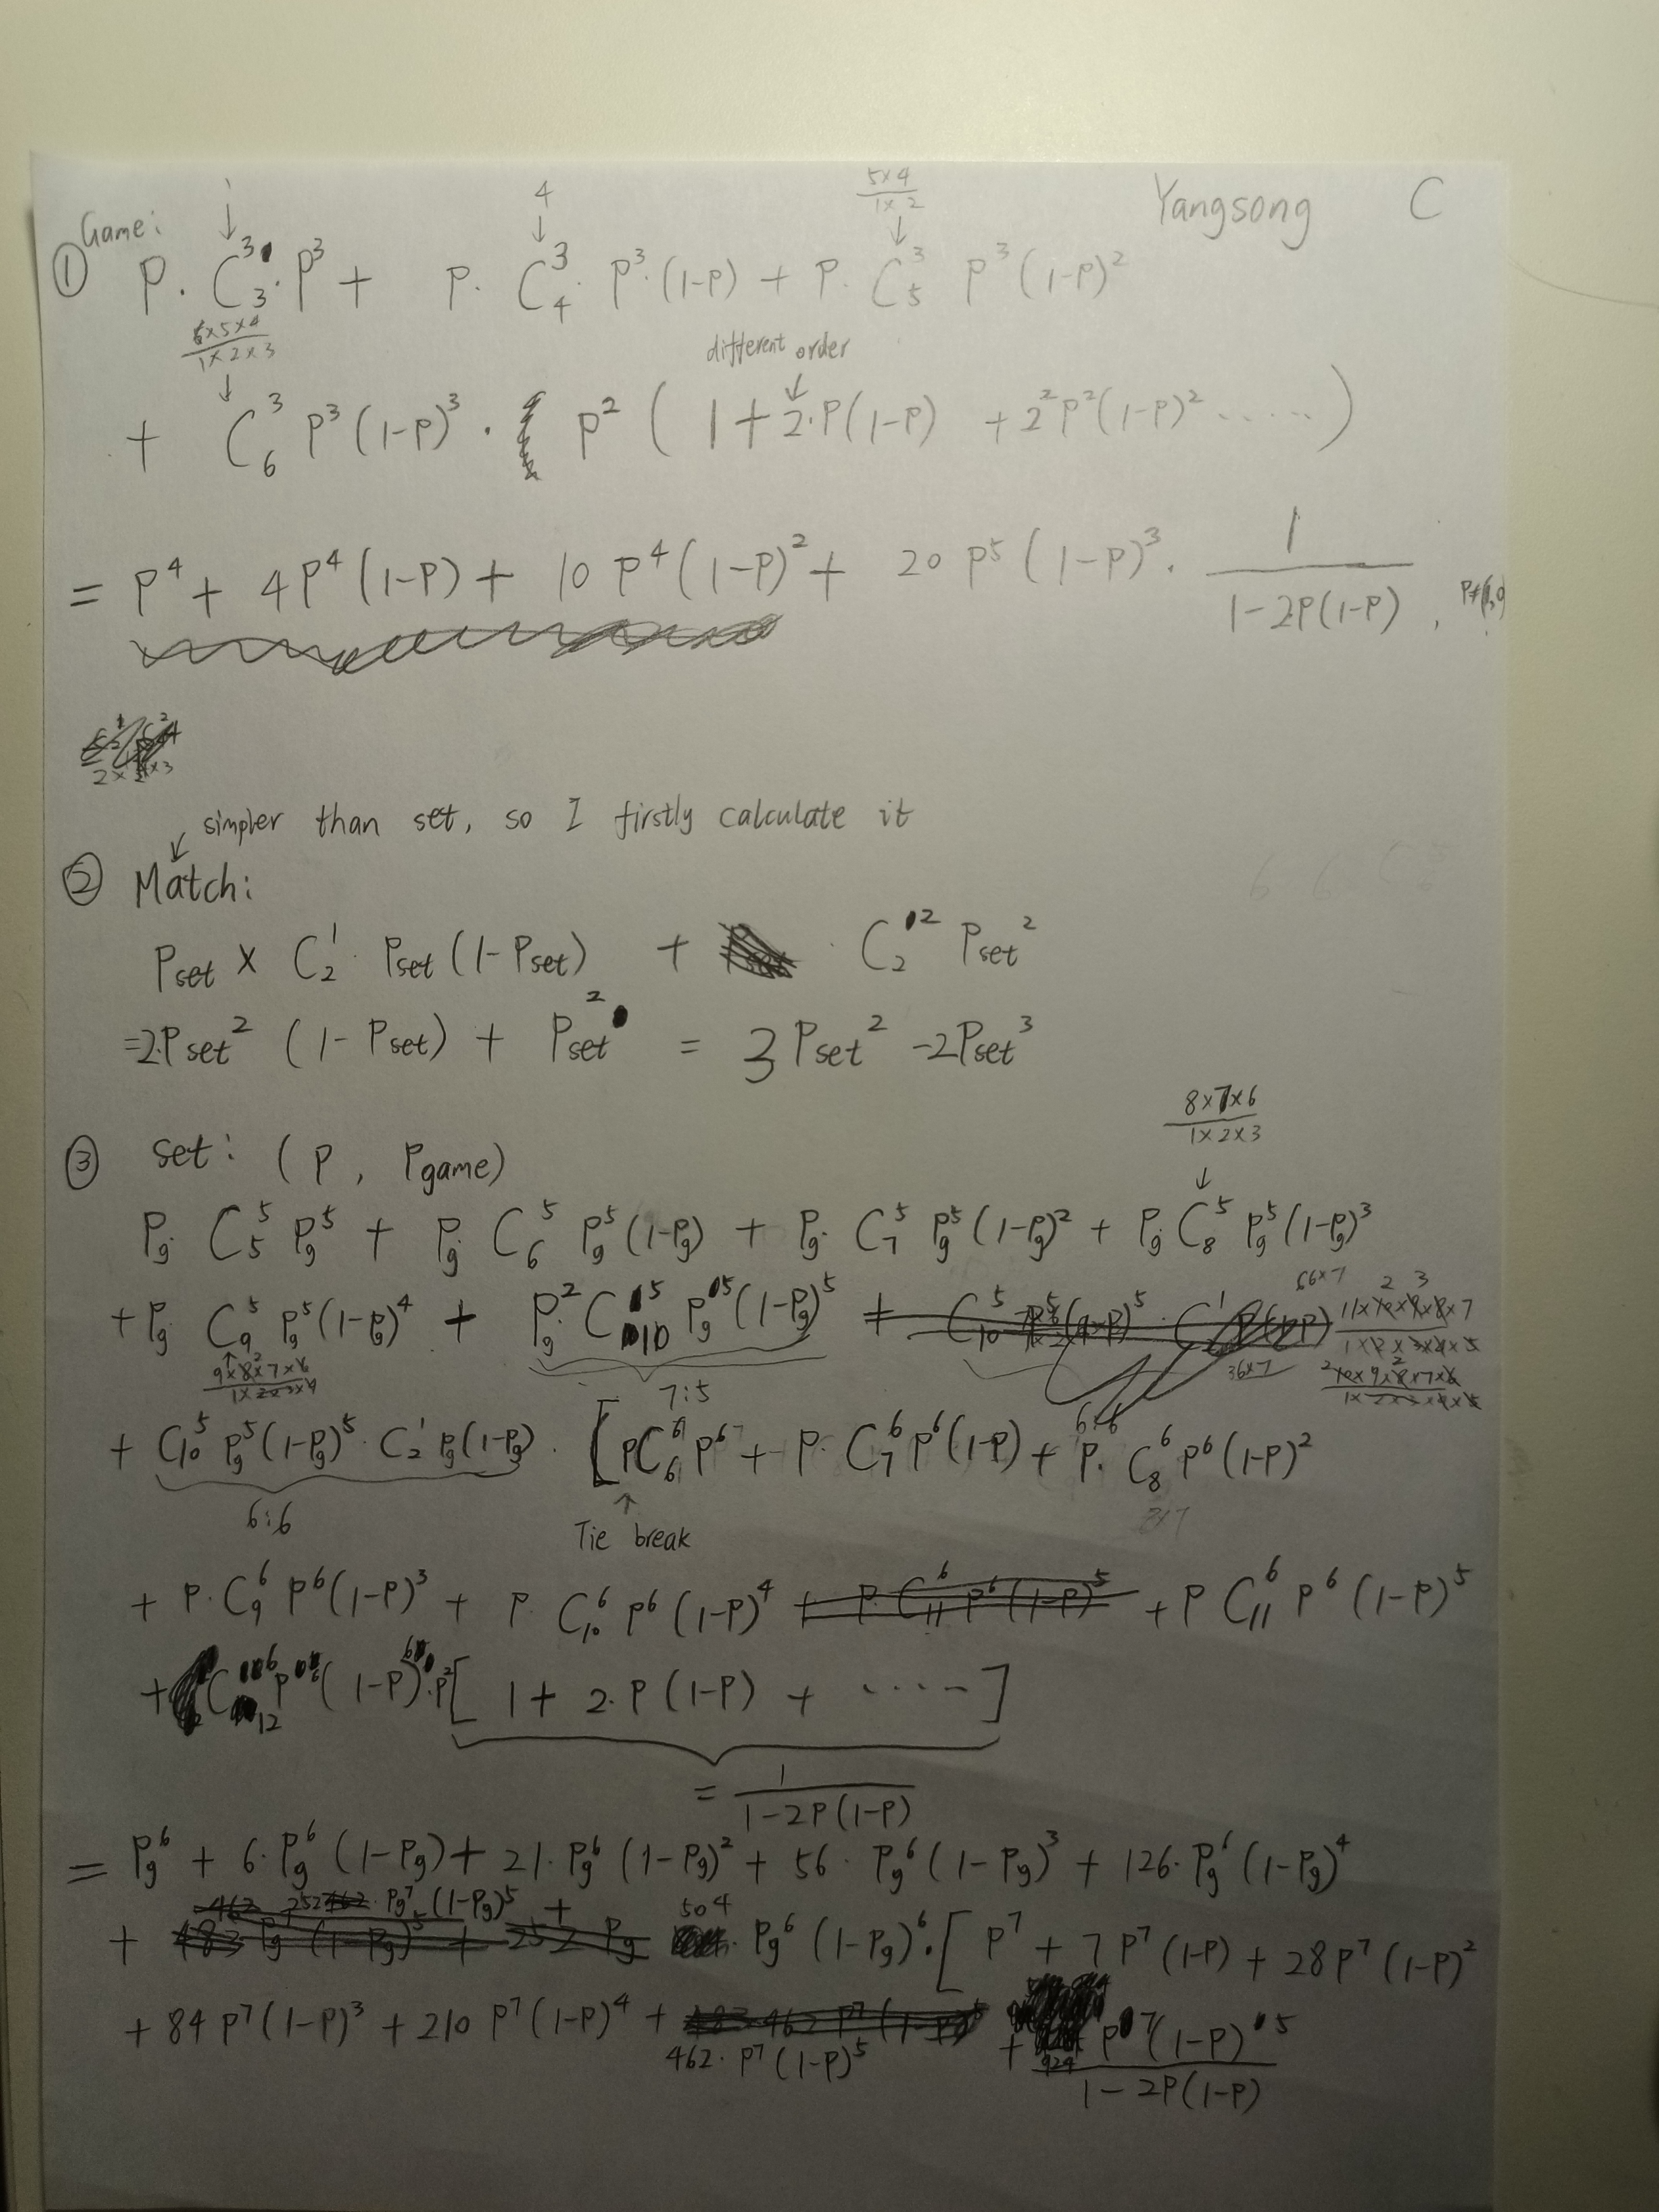 Yangsong C
Game:
1 4 5×4/1×2
① P. C₃³·P³ + P. C₄³· P³·(1-P) + P. C₅³ P³(1-P)²
6×5×4/1×2×3 different order
+ C₆³ P³(1-P)³ · P² ( 1 + 2·P(1-P) + 2²P²(1-P)² ······ )
= P⁴ + 4P⁴(1-P) + 10 P⁴(1-P)² + 20 P⁵(1-P)³ · 1/(1-2P(1-P)) ,
simpler than set, so I firstly calculate it
② Match:
Pset × C₂¹· Pset(1-Pset) + C₂² Pset²
=2·Pset² (1-Pset) + Pset² = 3 Pset² -2Pset³
8×7×6/1×2×3
③ set: (P, Pgame)
Pg· C₅⁵ Pg⁵ + Pg· C₆⁵ Pg⁵(1-Pg) + Pg· C₇⁵ Pg⁵(1-Pg)² + Pg· C₈⁵ Pg⁵(1-Pg)³
+ Pg· C₉⁵ Pg⁵(1-Pg)⁴ + Pg²· C₁₀⁵ Pg⁵(1-Pg)⁵
9×8×7×6/1×2×3×4 7:5 36×7
+ C₁₀⁵ Pg⁵(1-Pg)⁵· C₂¹ Pg(1-Pg) · [PC₆⁶P⁶ + P· C₇⁶P⁶(1-P) + P· C₈⁶P⁶(1-P)²
6:6 Tie break 8×7
+ P·C₉⁶ P⁶(1-P)³ + P C₁₀⁶ P⁶(1-P)⁴ + P C₁₁⁶ P⁶(1-P)⁵
+ C₁₂⁶ P⁶(1-P)⁶·P²[ 1 + 2·P(1-P) + ····· ]
= 1/(1-2P(1-P))
= Pg⁶ + 6·Pg⁶(1-Pg) + 21·Pg⁶(1-Pg)² + 56· Pg⁶(1-Pg)³ + 126·Pg⁶(1-Pg)⁴
252 · Pg⁷·(1-Pg)⁵ +
+ 504 · Pg⁶(1-Pg)⁶·[ P⁷ + 7P⁷(1-P) + 28P⁷(1-P)²
+ 84P⁷(1-P)³ + 210 P⁷(1-P)⁴ + 462·P⁷(1-P)⁵ + 924 P⁷(1-P)⁵/(1-2P(1-P))